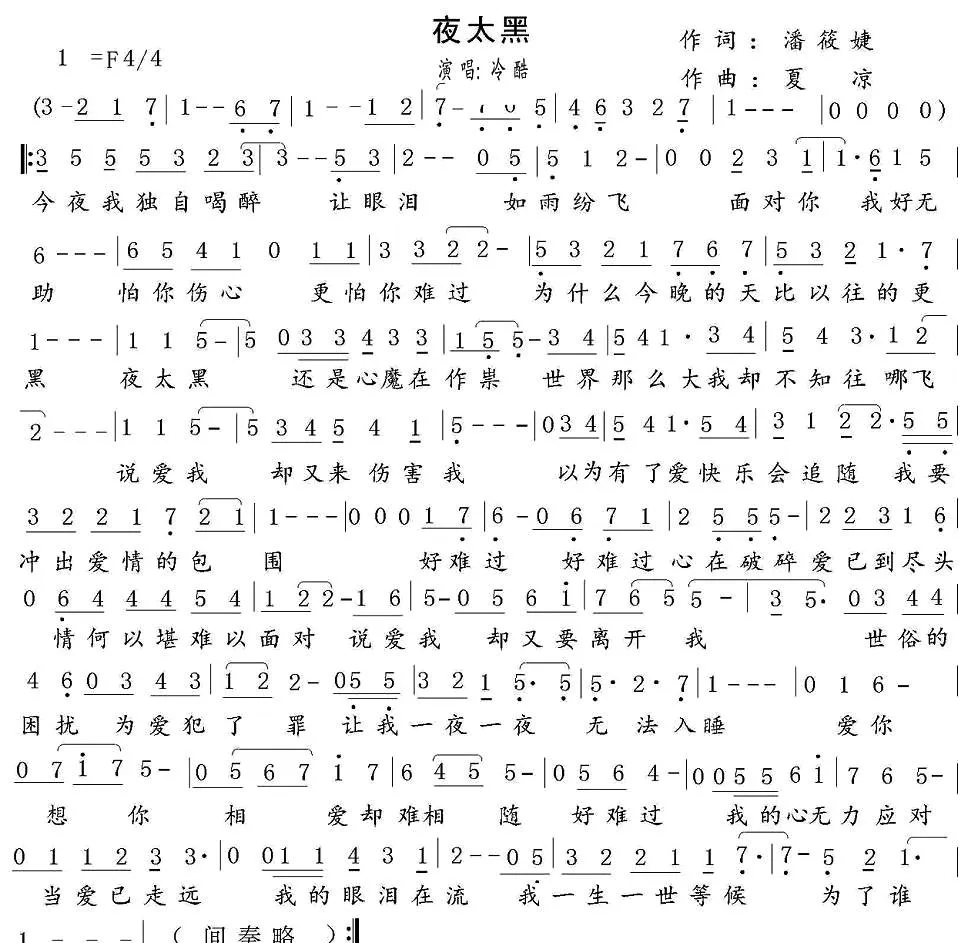 夜太黑
作词：潘筱婕
1=F4/4
演唱:冷酷
作曲：夏 凉
(3-2 1 7|1--6 7|1--1 2|7-5|4 6 3 2 7|1---|0 0 0 0)
‖:3 5 5 5 3 2 3|3--5 3|2--0 5|5 1 2-|0 0 2 3 1|1·6 1 5|
今夜我独自喝醉 让眼泪 如雨纷飞 面对你 我好无
6---|6 5 4 1 0 1 1|3 3 2 2-|5 3 2 1 7 6 7|5 3 2 1·7|
助 怕你伤心 更怕你难过 为什么今晚的天比以往的更
1---|1 1 5-|5 0 3 3 4 3 3|1 5 5-3 4|5 4 1·3 4|5 4 3·1 2|
黑 夜太黑 还是心魔在作祟 世界那么大我却不知往哪飞
2---|1 1 5-|5 3 4 5 4 1|5---|0 3 4|5 4 1·5 4|3 1 2 2·5 5|
说爱我 却又来伤害我 以为有了爱快乐会追随 我要
3 2 2 1 7 2 1|1---|0 0 0 1 7|6-0 6 7 1|2 5 5 5-|2 2 3 1 6|
冲出爱情的包 围 好难过 好难过心在破碎爱已到尽头
0 6 4 4 4 5 4|1 2 2-1 6|5-0 5 6 i|7 6 5 5-|3 5·0 3 4 4|
情何以堪难以面对 说爱我 却又要离开 我 世俗的
4 6 0 3 4 3|1 2 2-0 5 5|3 2 1 5·5|5·2·7|1---|0 1 6-|
困扰 为爱犯了 罪 让我一夜一夜 无 法入睡 爱你
0 7 i 7 5-|0 5 6 7 i 7|6 4 5 5-|0 5 6 4-|0 0 5 5 6 i|7 6 5-|
想 你 相 爱却难相 随 好难过 我的心无力应对
0 1 1 2 3 3·|0 0 1 1 4 3 1|2--0 5|3 2 2 1 1 7·|7-5 2 1·|
当爱已走远 我的眼泪在流 我一生一世等候 为了谁
1---|(间奏略):‖